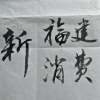 新福建
消费